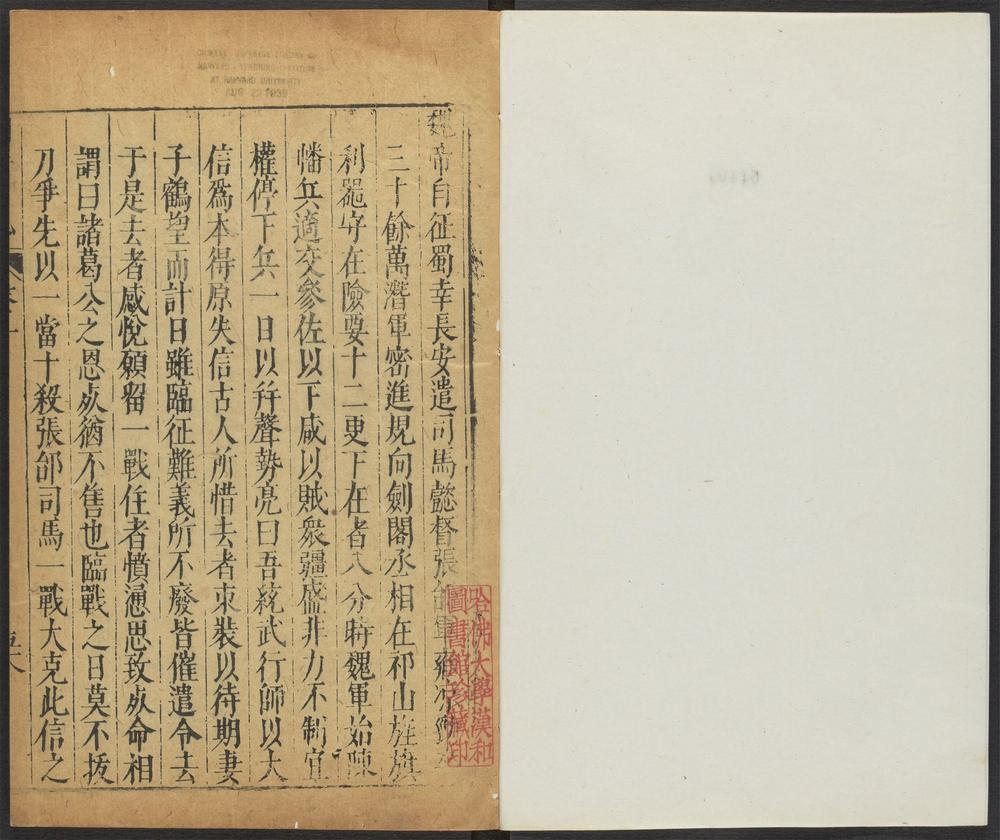 魏帝自征蜀幸長安遣司馬懿督張郃軍雍涼勁卒
三十餘萬潛軍密進規向劍閣丞相在祁山旌旗
利器守在險要十二更下在者八分時魏軍始陳
幡兵適交參佐以下咸以賊衆疆盛非力不制宜
權停下兵一日以并聲勢亮曰吾統武行師以大
信爲本得原失信古人所惜去者束裝以待期妻
子鶴望而計日雖臨征難義所不廢皆催遣令去
于是去者感悅願留一戰住者憤通思致死命相
謂曰諸葛公之恩死猶不售也臨戰之日莫不拔
刀爭先以一當十殺張郃司馬一戰大克此信之
哈佛大學漢和
圖書館珍藏印
AT HARVARD UNIVERSITY
AUG 23 1939